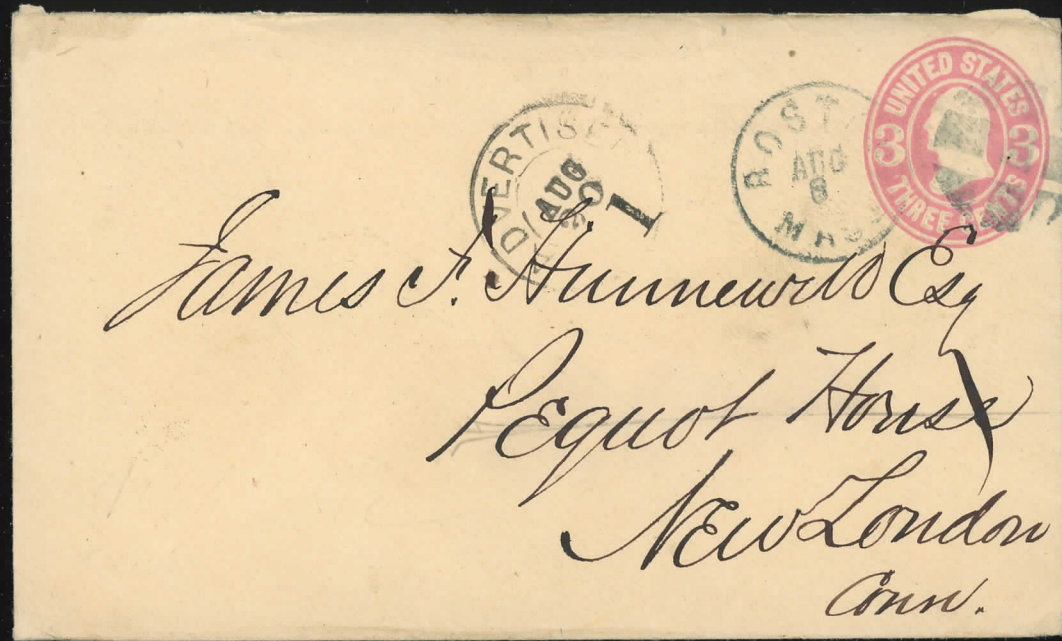 UNITED STATES
3 3
THREE CENTS
BOSTON
AUG
8
MASS
ADVERTISED
AUG
1
James F. Hunnewell Esq
Pequot House
New London
Conn.